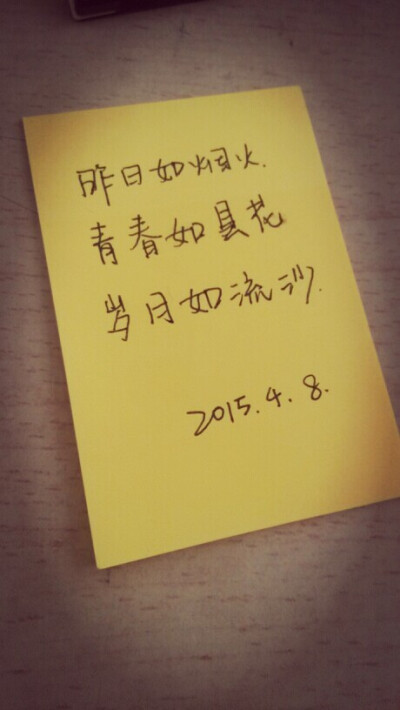 昨日如烟火.
青春如昙花
岁月如流沙.
2015.4.8.